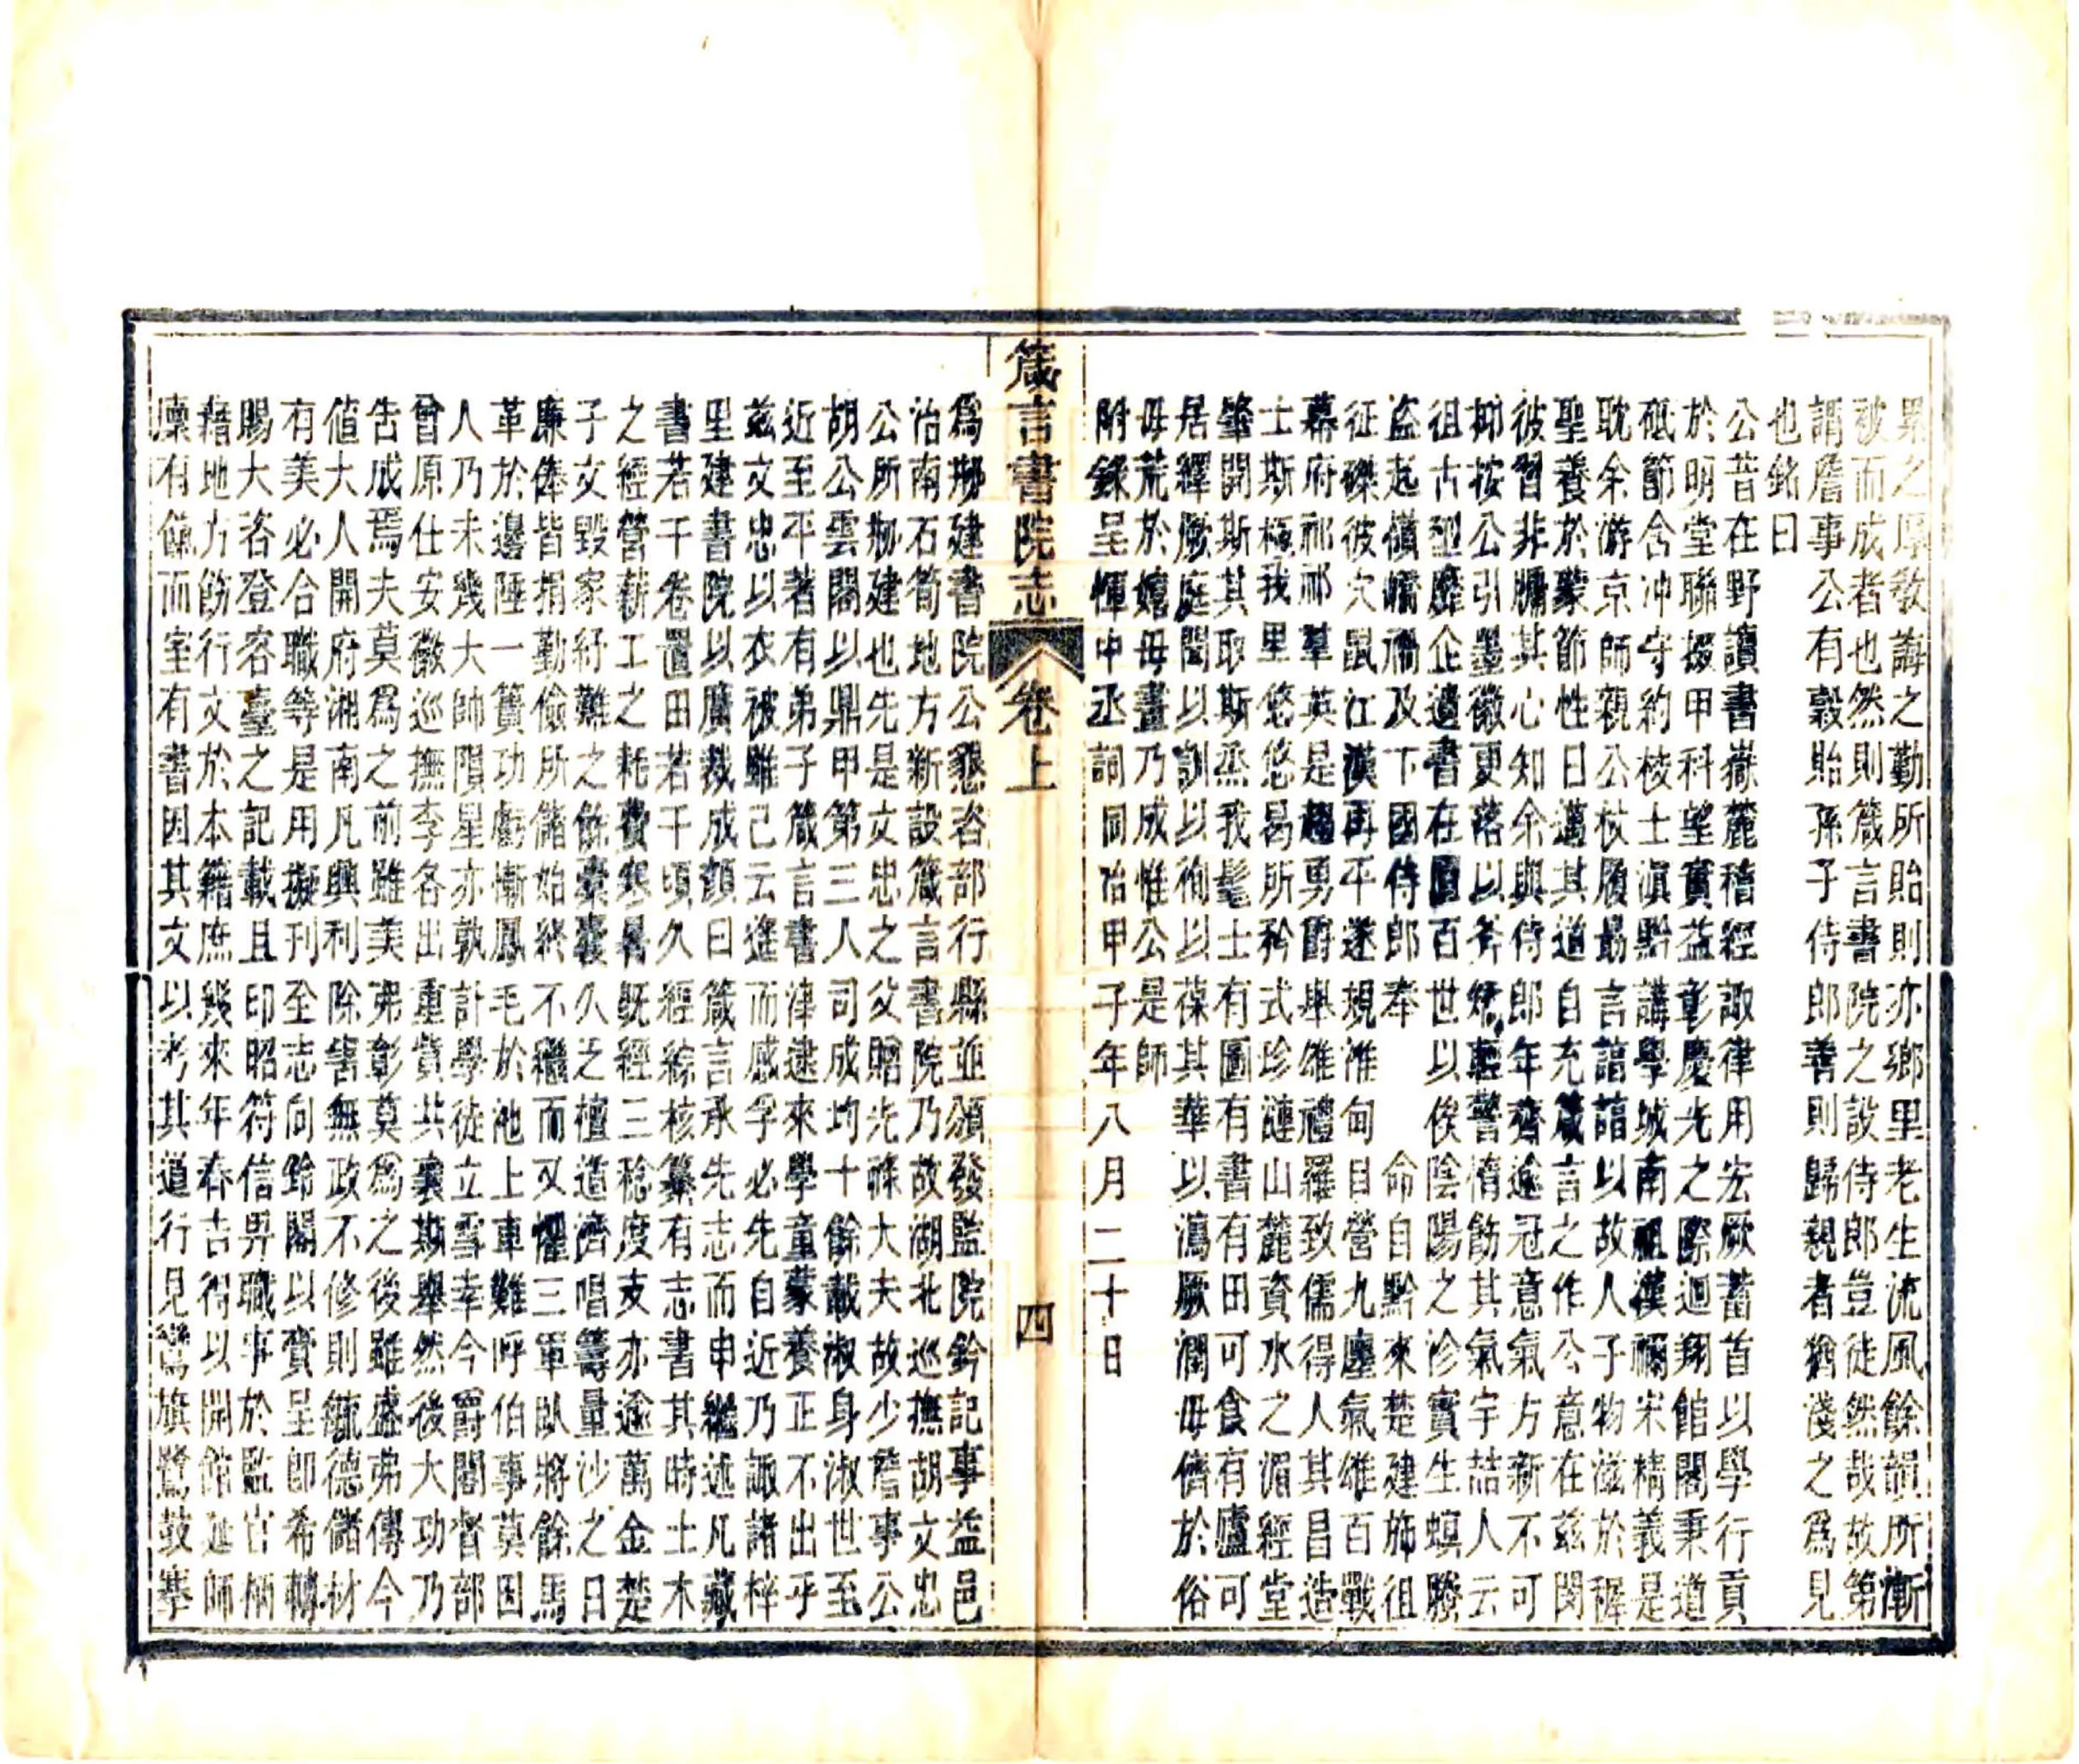 累之厚敎誨之勤所貽則亦鄉里老生流風餘韻所漸
被而成者也然則箴言書院之設侍郎豈徒然哉故第
謂詹事公有穀貽孫子侍郎善則歸親者猶淺之爲見
也銘曰
公昔在野讀書嶽麓稽經諏律用宏厥蓄首以學行貢
於明堂聯掇甲科望實益彰慶光之際迴翔館閣秉道
砥節含冲守約校士滇黔講學城南祖漢禰宋精義是
耽余游京師親公杖履最言諳諳以故人子物滋於穉
聖養於蒙節性日邁其道自充箴言之作公意在茲閔
彼習非牖其心知余與侍郎年齊逾冠意氣方新不可
抑按公引墨徽更落以斧矯輕警惰飭其氣宇喆人云
徂古型靡企遺書在匱百世以俟陰陽之沴實生螟螣
盜起嶺嶠禍及下國侍郎奉　命自黔來楚建斾徂
征磔彼穴鼠江漢再平遂規淮甸目營九廛氣雄百戰
幕府祁祁羣英是趨勇爵舉雄禮羅致儒得人其昌造
士斯極我里悠悠曷所矜式珍漣山麓資水之湄經堂
肇開斯其取斯烝我髦士有圖有書有田可食有廬可
居繹厥庭聞以訓以徇以葆其華以瀉厥潤毋儕於俗
毋荒於嬉毋畫乃成惟公是師
附錄呈惲中丞詞同治甲子年八月二十日
箴言書院志　卷上　四
爲捌建書院公懇咨部行縣並頒發監院鈐記事益邑
治南石筍地方新設箴言書院乃故湖北巡撫胡文忠
公所捌建也先是文忠之父贈光祿大夫故少詹事公
胡公雲閣以鼎甲第三人司成均十餘載淑身淑世至
近至平著有弟子箴言書津逮來學童蒙養正不出乎
茲文忠以衣被雖己云進而感孚必先自近乃諏諸梓
里建書院以廣裁成顏曰箴言承先志而申繼述凡藏
書若干卷置田若干頃久經綜核纂有志書其時土木
之經營薪工之耗費寒暑既經三稔度支亦逾萬金楚
子文毀家紓難之餘橐囊久乏檀道濟唱籌量沙之日
廉俸皆捐勤儉所儲始終不繼而又櫂三軍臥將餘馬
革於邊陲一簣功虧慚鳳毛於池上車難呼伯事莫因
人乃未幾大帥隕星亦敦計學徒立雪幸今爵閣督部
曾原仕安徽巡撫李各出重貲共襄斯舉然後大功乃
告成焉夫莫爲之前雖美弗彰莫爲之後雖盛弗傳今
値大人開府湘南凡興利除害無政不修則毓德儲材
有美必合職等是用擬刊至志向鈴閣以賫呈卽希轉
賜大咨登容臺之記載且印昭符信畀職事於監官柄
藉地方飭行文於本籍庶幾來年春吉得以開館延師
凜有餼而室有書因其文以考其道行見鸞旗鷺鼓搴